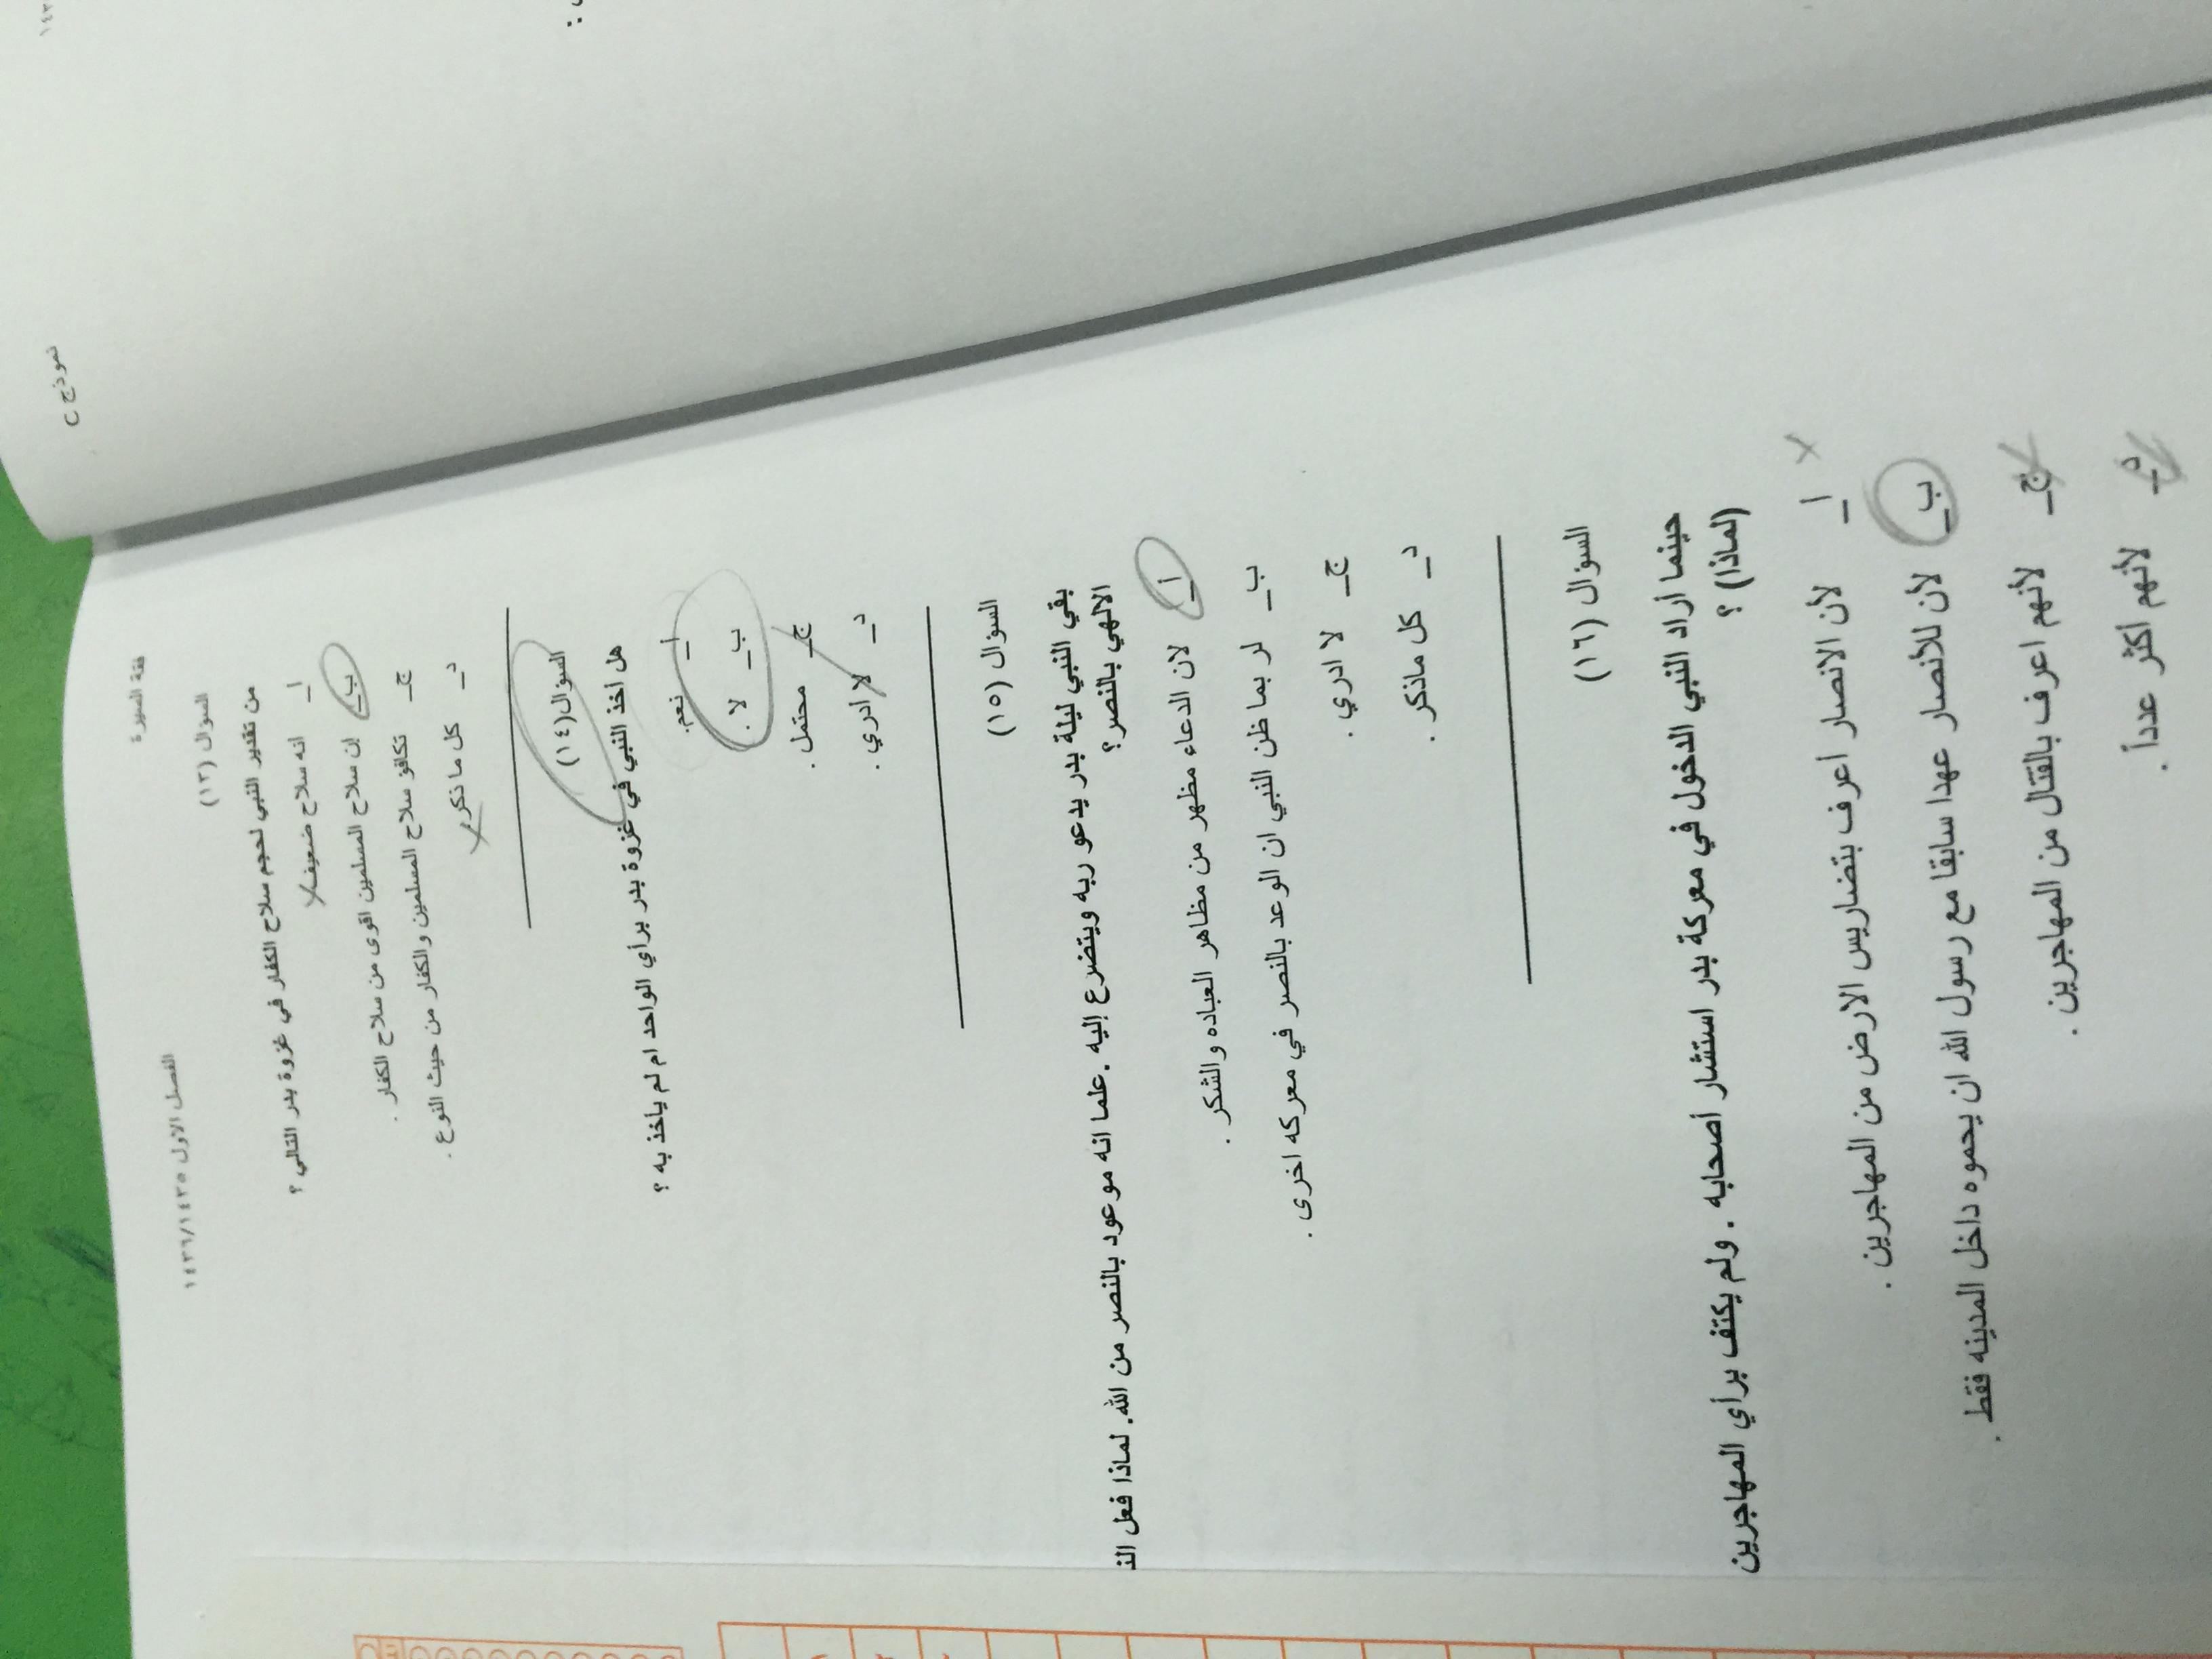 نموذج C
فقة السيرة
الفصل الاول ١٤٣٦/١٤٣٥
السؤال (١٣)
من تقدير النبي لحجم سلاح الكفار في غزوة بدر التالي ؟
ا_ انه سلاح ضعيف
ب_ إن سلاح المسلمين اقوى من سلاح الكفار .
ج_ تكافؤ سلاح المسلمين والكفار من حيث النوع .
د_ كل ما ذكر
السؤال(١٤)
هل أخذ النبي في غزوة بدر برأي الواحد ام لم يأخذ به ؟
ا_ نعم.
ب_ لا .
ج_ محتمل .
د_ لا أدري .
السؤال (١٥)
بقي النبي ليلة بدر يدعو ربه ويتضرع إليه .علما انه موعود بالنصر من الله. لماذا فعل
الالهي بالنصر؟
ا_ لان الدعاء مظهر من مظاهر العباده والشكر .
ب_ لربما ظن النبي ان الوعد بالنصر في معركه اخرى .
ج_ لا ادري .
د_ كل ماذكر .
السؤال (١٦)
حينما أراد النبي الدخول في معركة بدر استشار أصحابه . ولم يكتف برأي المهاجرين
(لماذا) ؟
ا_ لأن الانصار اعرف بتضاريس الارض من المهاجرين .
ب_ لأن للأنصار عهدا سابقا مع رسول الله ان يحموه داخل المدينه فقط .
ج_ لأنهم اعرف بالقتال من المهاجرين .
د_ لأنهم أكثر عدداً .